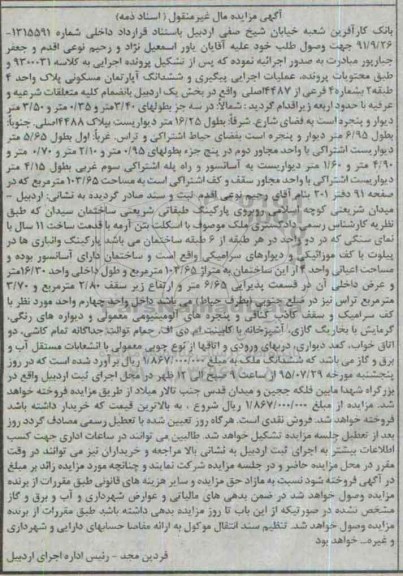 آگهی مزایده مال غیرمنقول ( اسناد ذمه)
بانک کارآفرین شعبه خیابان شیخ صفی اردبیل باستناد قرارداد داخلی شماره ۱۳۱۵۵۹۱-
۹۱/۹/۲۶ جهت وصول طلب خود علیه آقایان یاور اسمعیل نژاد و رحیم نوعی اقدم و جعفر
جبارپور مبادرت به صدور اجرائیه نموده که پس از تشکیل پرونده اجرایی به کلاسه ۹۳۰۰۰۳۱ و
طبق محتویات پرونده، عملیات اجرایی پیگیری و ششدانگ آپارتمان مسکونی پلاک واحد ۴
طبقه۲ بشماره۴ فرعی از ۴۴۸۷اصلی واقع در بخش یک اردبیل بانضمام کلیه متعلقات شرعیه و
عرفیه با حدود اربعه زیراقدام گردید : شمالاً: در سه جز بطولهای ۳/۴۰متر و ۰/۳۵ متر و ۳/۵۰ متر
دیوار و پنجره است به فضای شارع. شرقاً: بطول ۱۶/۲۵ متر دیواریست بپلاک ۴۴۸۸اصلی. جنوباً:
بطول ۶/۹۵ متر دیوار و پنجره است بفضای حیاط اشتراکی و تراس. غرباً: اول بطول ۵/۶۵ متر
دیواریست اشتراکی با واحد مجاور دوم در پنج جزء بطولهای ۰/۹۵ متر و ۲/۱۰ متر و ۰/۷۰ متر و
۴/۹۰ متر و ۱/۶۰ متر دیواریست به آسانسور و راه پله اشتراکی سوم غربی بطول ۴/۱۵ متر
دیواریست اشتراکی با واحد مجاور سقف و کف اشتراکی است به مساحت ۱۰۳/۶۵ مترمربع که در
صفحه ۹۱ دفتر ۲۰۱ بنام آقای رحیم نوعی اقدم ثبت و سند صادر گردیده به نشانی: اردبیل -
میدان شریعتی کوچه اسلامی روبروی پارکینگ طبقاتی شریعتی ساختمان سیدان که طبق
نظریه کارشناس رسمی دادگستری ملک موصوف با اسکلت بتن آرمه با قدمت ساخت ۱۱ سال با
نمای سنگی که در دو واحد در هر طبقه از ۶ طبقه ساختمان می باشد پارکینگ وانباری ها در
پیلوت با کف موزائیکی و دیوارهای سرامیکی واقع است و ساختمان دارای آسانسور بوده و
مساحت اعیانی واحد ۴ از این ساختمان به متراژ ۱۰۳/۶۵ مترمربع و طول داخلی واحد ۱۶/۳۰متر
و عرض داخلی آن در قسمت پذیرایی ۶/۶۵ متر و ارتفاع زیر سقف ۲/۸۰ مترمربع و ۳/۷۰
مترمربع تراس نیز در ضلع جنوبی (بطرف حیاط) می باشد داخل واحد چهارم واحد مورد نظر با
کف سرامیک و سقف کاذب کنافی و پنجره های آلومینیومی معمولی و دیواره های رنگی،
گرمایش با بخاریک گازی، آشپزخانه با کابینت ام.دی.اف، حمام توالت جداگانه تمام کاشی، دو
اتاق خواب، کمد دیواری، دربهای ورودی و اتاقها از نوع چوبی معمولی با انشعابات مستقل آب و
برق و گاز می باشد که ششدانگ ملک به مبلغ ۱/۸۶۷/۰۰۰/۰۰۰ ریال برآورد شده است که در روز
پنجشنبه مورخه ۹۵/۰۷/۲۹ از ساعت ۹ صبح الی ۱۲ ظهر در محل اجرای ثبت اردبیل واقع در
بزرگراه شهدا مابین فلکه ججین و میدان قدس جنب تالار میلاد از طریق مزایده فروخته خواهد
شد. مزایده از مبلغ ۱/۸۶۷/۰۰۰/۰۰۰ ریال شروع ، به بالاترین قیمت که خریدار داشته باشد
فروخته خواهد شد. فروش نقدی است. هرگاه روز تعیین شده با تعطیل رسمی مصادف گردد روز
بعد از تعطیل جلسه مزایده تشکیل خواهد شد. طالبین می توانند در ساعات اداری جهت کسب
اطلاعات بیشتر به اجرای ثبت اردبیل به نشانی بالا مراجعه و خریداران نیز می توانند در وقت
مقرر در محل مزایده حاضر و در جلسه مزایده شرکت نمایند و چنانچه مورد مزایده زائد بر مبلغ
در آگهی فروخته شود نسبت به مازاد حق مزایده و سایر هزینه های قانونی طبق مقررات از برنده
مزایده وصول خواهد شد در ضمن بدهی های مالیاتی و عوارض شهرداری و آب و برق و گاز
مشخص نشده در صورتیکه از این باب تا روز مزایده بدهی داشته باشد طبق مقررات از برنده
مزایده وصول خواهد شد. تنظیم سند انتقال موکول به ارائه مفاصا حسابهای دارایی و شهرداری
و غیره... خواهد بود
فردین مجد - رئیس اداره اجرای اردبیل